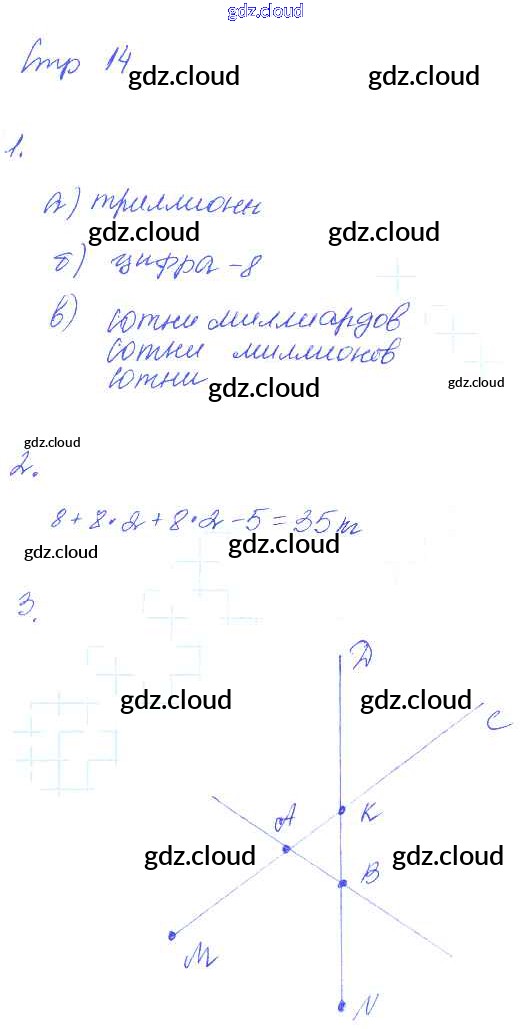 gdz.cloud
Стр 14
gdz.cloud gdz.cloud
1.
а) триллион
gdz.cloud gdz.cloud
б) цифра - 8
в) сотни миллиардов
сотни миллионов
сотни
gdz.cloud gdz.cloud
gdz.cloud
2.
8 + 8 · 2 + 8 · 2 - 5 = 35 кг
gdz.cloud gdz.cloud
3.
D
gdz.cloud gdz.cloud
C
K
A
gdz.cloud gdz.cloud
B
M
N